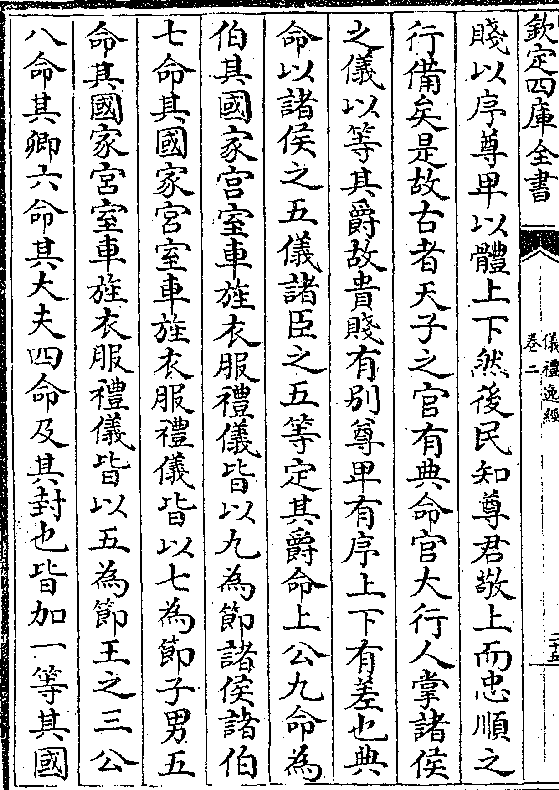 欽定四庫全書
儀禮逸經
卷二
賤以序尊卑以體上下然後民知尊君敬上而忠順之
行備矣是故古者天子之官有典命官大行人掌諸侯
之儀以等其爵故貴賤有别尊卑有序上下有差也典
命以諸侯之五儀諸臣之五等定其爵命上公九命為
伯其國家宫室車旌衣服禮儀皆以九為節諸侯諸伯
七命其國家宫室車旌衣服禮儀皆以七為節子男五
命其國家宫室車旌衣服禮儀皆以五為節王之三公
八命其卿六命其大夫四命及其封也皆加一等其國